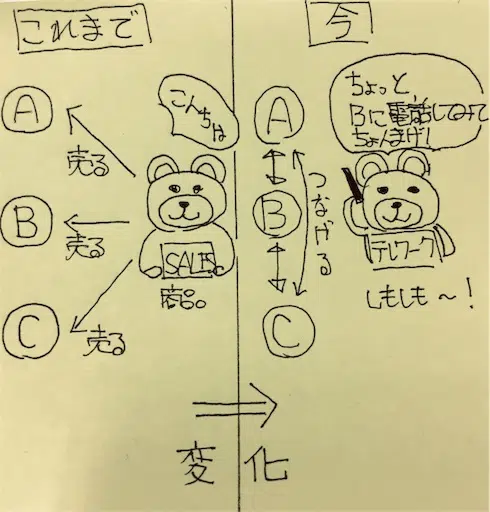 これまで
A
売る
B
売る
C
売る
こんちは
SALES
商品。
今
A
B
C
つなげる
ちょっと、
Bに電話してみて
ちょんまげ!
テレワーク
しもしも〜!
変化